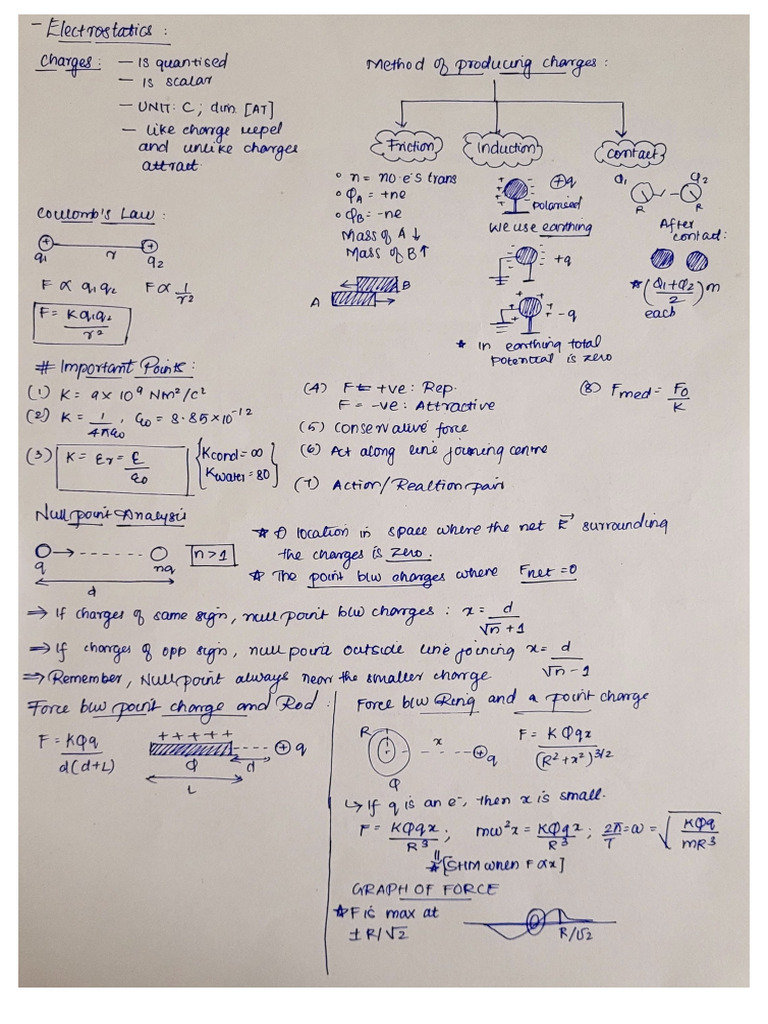 - Electrostatics :
Charges : - is quantised
- is scalar
- UNIT: C ; dim. [AT]
- like charge repel
and unlike charges
attract
Method of producing charges :
Friction
Induction
contact
° n = no. e⁻s trans
° Q_A = +ne
° Q_B = -ne
Mass of A ↓
Mass of B ↑
A B
⊕q
polarised
We use earthing
+q
-q
* in earthing total
potential is zero
Q1 Q2
R R
After
contact:
* (Q1+Q2 / 2) m
each
Coulomb's Law :
+ +
q1 r q2
F ∝ q1q2 F ∝ 1/r²
F = Kq1q2 / r²
# Important Points :
(1) K = 9 x 10⁹ Nm²/C²
(2) K = 1/4πε0 , ε0 = 8.85x10⁻¹²
(3) K = εr = ε/ε0 { Kcond = ∞
Kwater = 80 }
(4) F = +ve : Rep.
F = -ve : Attractive
(5) conservative force
(6) Act along line joining centre
(7) Action/Reaction pair
(8) Fmed = F0/K
Null point Analysis
q nq n>1
d
* A location in space where the net E⃗ surrounding
the charges is zero.
* The point b/w charges where Fnet = 0
⇒ If charges of same sign, null point b/w charges : x = d/√n + 1
⇒ If charges of opp sign, null point outside line joining x = d/√n - 1
⇒ Remember, Null point always near the smaller charge
Force b/w point charge and Rod :
F = KQq / d(d+L)
+ + + + +
Q d ⊕ q
L
Force b/w Ring and a point charge
R x ⊕q
Q
F = KQqx / (R²+x²)^3/2
↳ If q is an e⁻, then x is small.
F = KQqx/R³ ; mω²x = KQqx/R³ ; 2π/T = ω = √KQq/mR³
* [SHM when F ∝ x]
GRAPH OF FORCE
* F is max at
± R/√2
R/√2